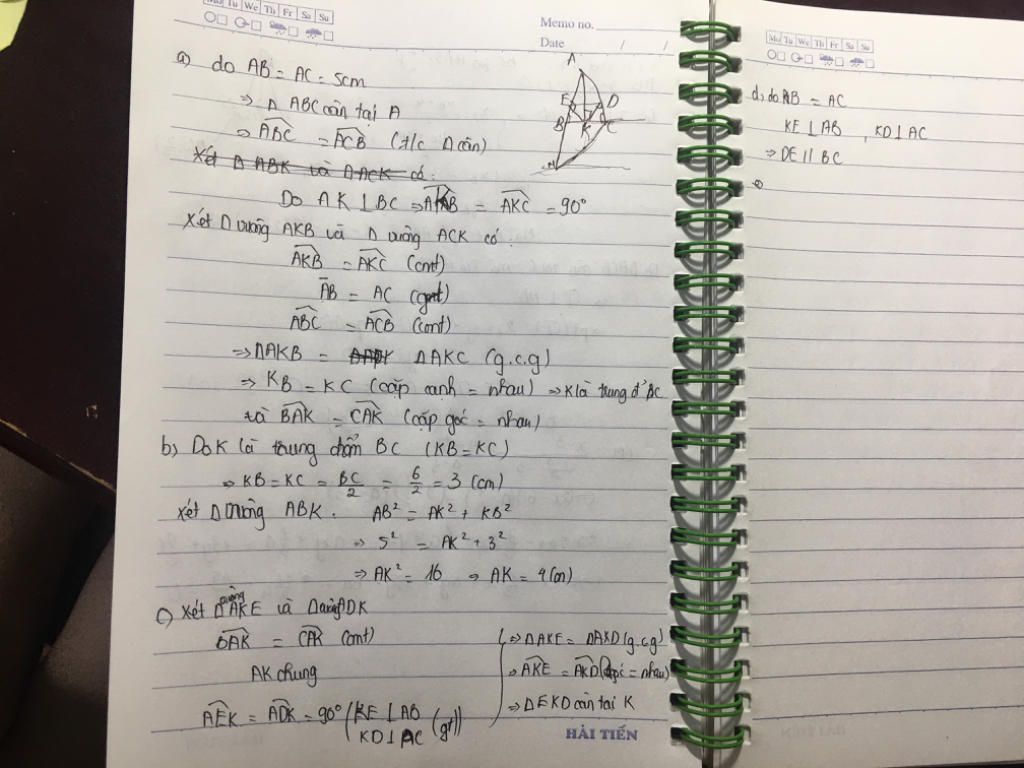 Mo Tu We Th Fr Sa Su
Memo no.
Date / /
a) do AB = AC = 5cm
⇒ Δ ABC cân tại A
⇒ ABC = ACB (t/c Δ cân)
Xét Δ ABK và Δ ACK có:
Do AK ⊥ BC ⇒ AKB = AKC = 90°
Xét Δ vuông AKB và Δ vuông ACK có:
AKB = AKC (cmt)
AB = AC (gt)
ABC = ACB (cmt)
⇒ ΔAKB = ΔAKC (g.c.g)
⇒ KB = KC (cặp cạnh = nhau) ⇒ K là trung đ' BC
và BAK = CAK (cặp góc = nhau)
b) Do K là trung điểm BC (KB = KC)
⇒ KB = KC = BC/2 = 6/2 = 3 (cm)
Xét Δ vuông ABK: AB² = AK² + KB²
⇒ 5² = AK² + 3²
⇒ AK² = 16 ⇒ AK = 4(cm)
c) Xét Δ vuông AKE và Δ vuông ADK
BAK = CAK (cmt)
AK chung
AEK = ADK = 90° (KE ⊥ AB
KD ⊥ AC (gt))
⇒ ΔAKE = ΔAKD (g.c.g)
⇒ AKE = AKD (góc = nhau)
⇒ ΔEKD cân tại K
HẢI TIẾN
A
E D
B K C
M
Mo Tu We Th Fr Sa Su
d) do AB = AC
KE ⊥ AB , KD ⊥ AC
⇒ DE // BC